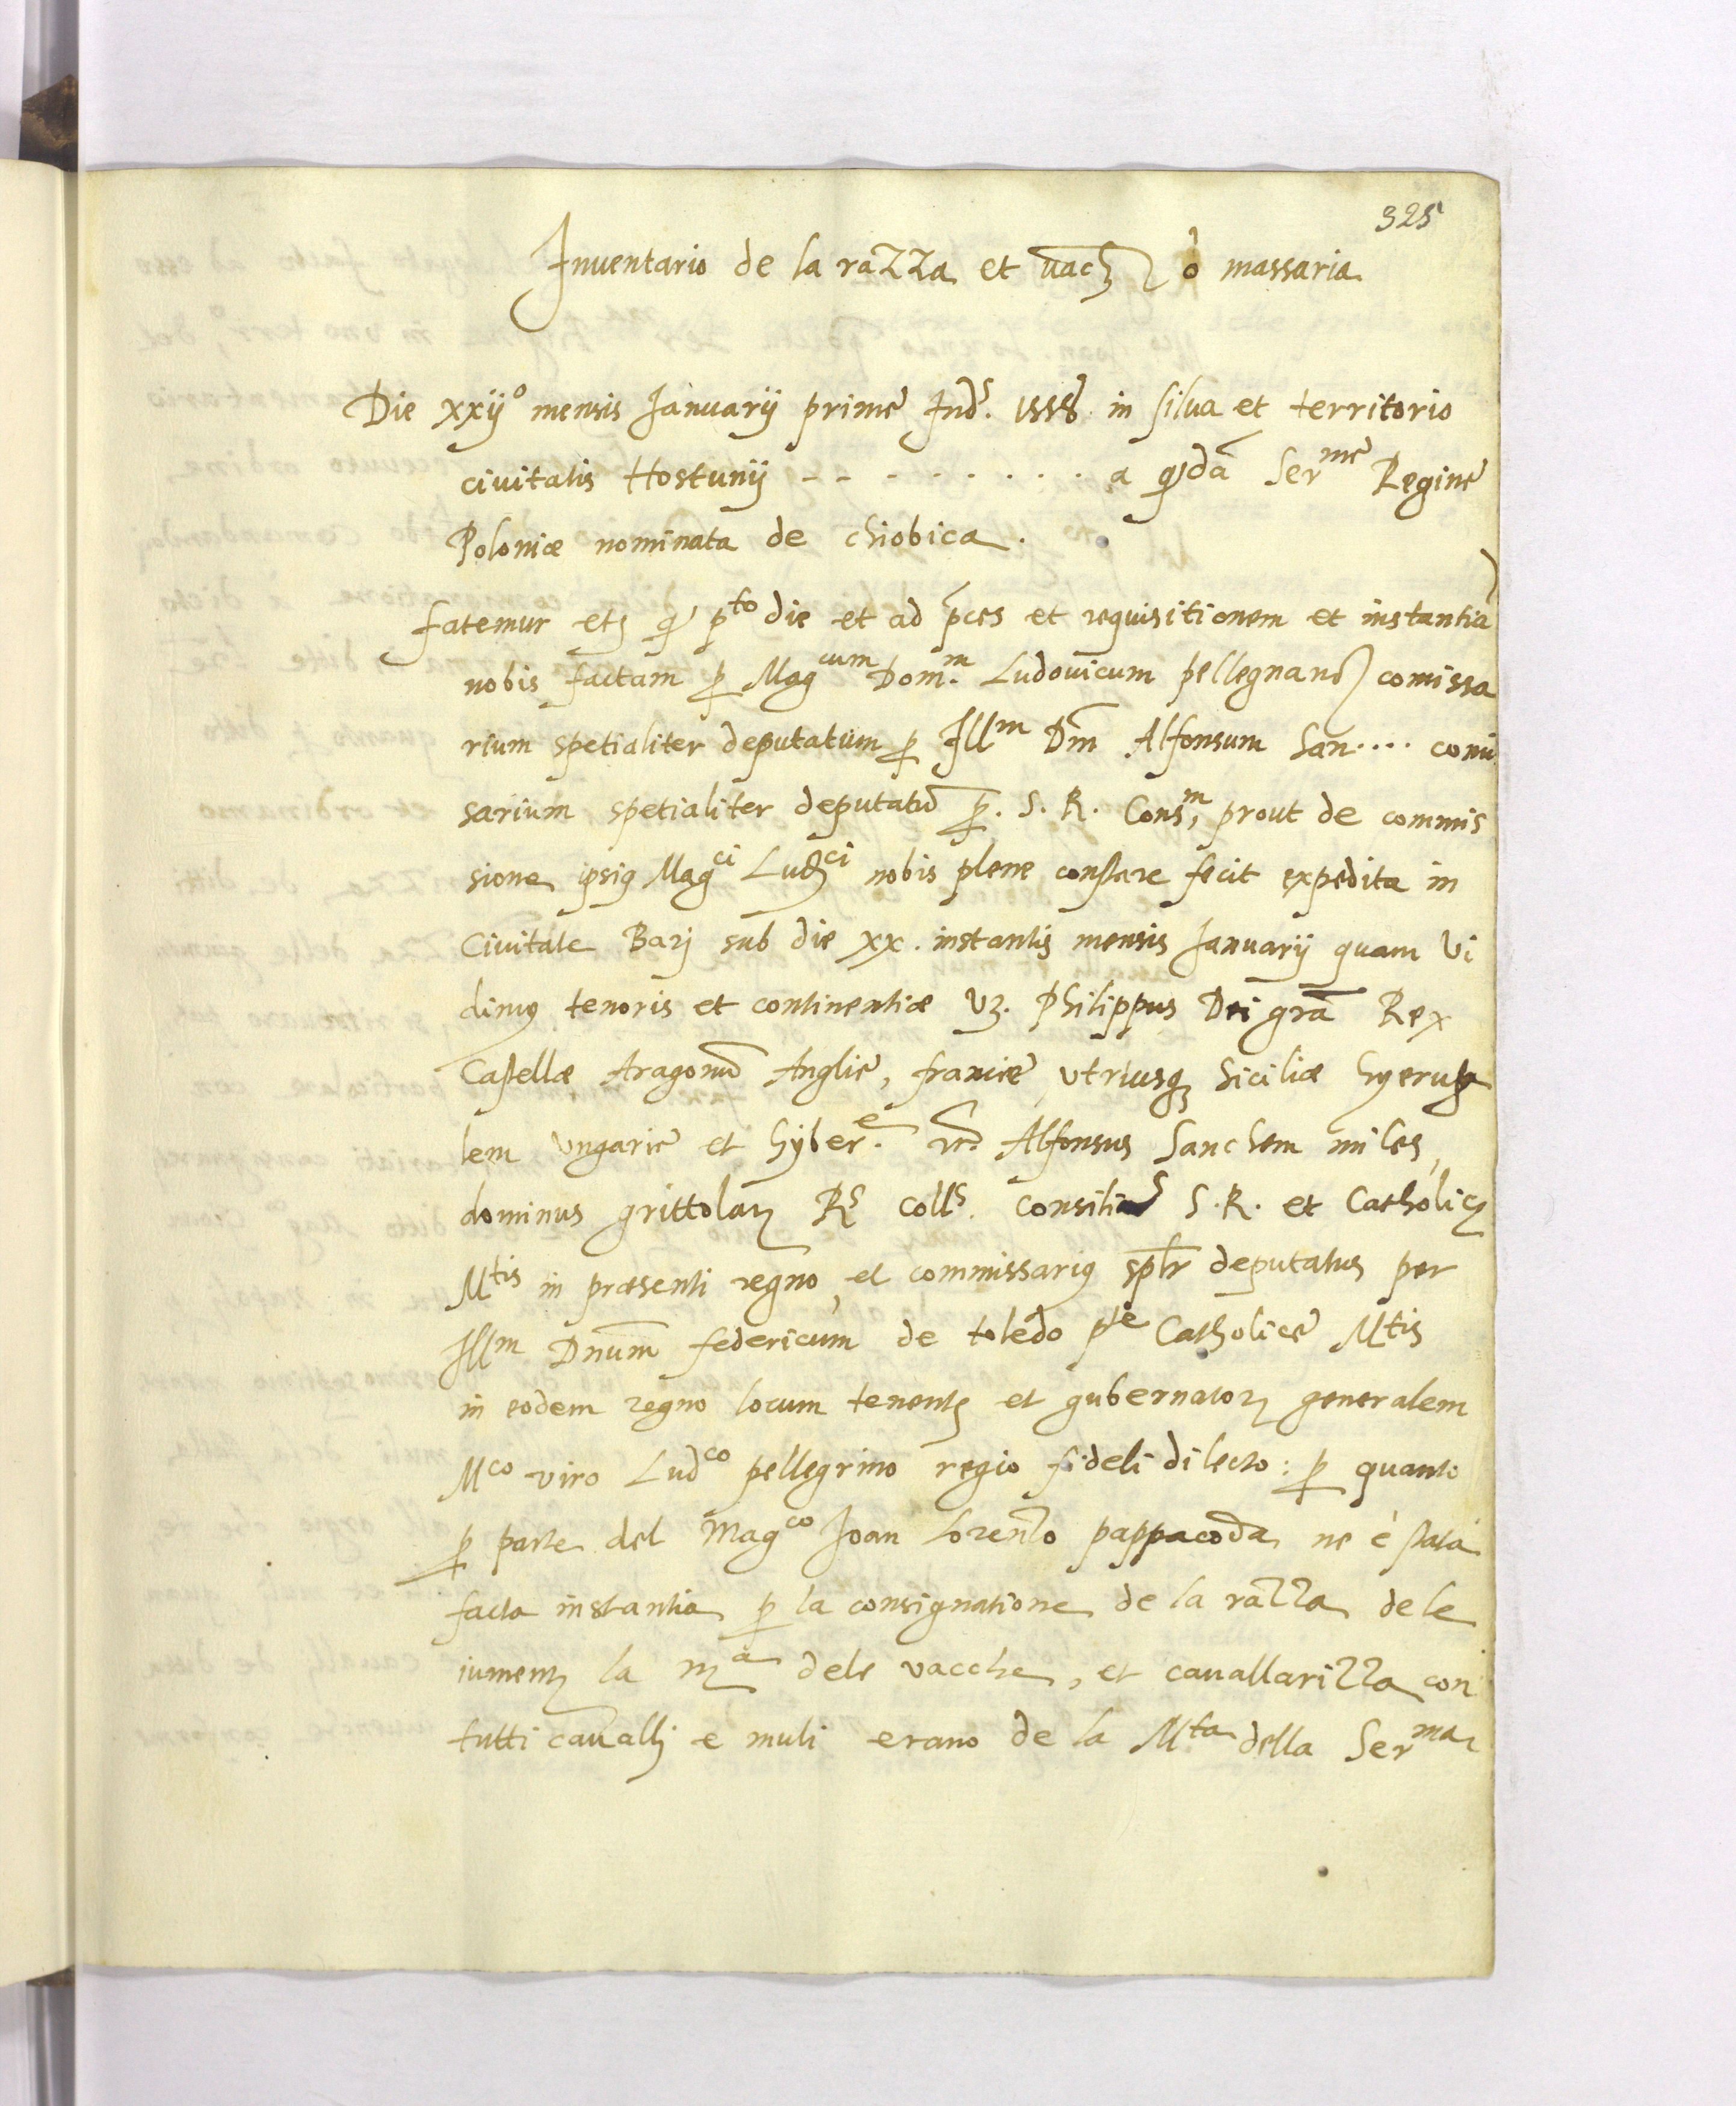 325
Inventario de la razza et vacche o massaria
Die xxijº mensis Januarij prime Ind. 1558. in silva et territorio
civitatis Hostunij - - - . . . . . . . a qdā Ser^me Regine
Poloniæ nominata de chiobica.
fatemur et p^to die et ad pces et requisitionem et instantiā
nobis factam p Mag^cum Dom^m. Ludovicum pellegnanū comissa
rium spetialiter deputatum p Ill^m Dm̄ Alfonsum San.... comi
sarium spetialiter deputatū p. S. R. Cons^m, prout de commis
sione ipsius Mag^ci Lud^ci nobis plene constare fecit expedita in
Civitate Barj sub die xx. instantis mensis Januarij quam Vi
dimus tenoris et continentiæ Vz. Philippus Dei grā Rex
Castellæ Aragonū Anglie, francie, utriusq3 Siciliæ hyerusa
lem Ungarie et hyber^e. Alfonsus Sanchem miles,
dominus grittolarum R^s coll^s. Consilia^s S. R. et Catholicæ
M^tis in præsenti regno, et commissarius splr deputatus per
Ill^m Dnum̄ federicum de toledo p^te Catholice M^tis
in eodem regno locum tenentem et gubernatorem generalem
M^co viro Lud^co pellegrino regio fideli dilecto: p quanto
p parte del Mag^co Joan Lorenzo pappacoda ne è stata
facta instantia p la consignatione de la razza de le
iumente la m^a dele vacche, et cavallarizza con
tutti cavalli e muli erano de la M^ta della Ser^ma